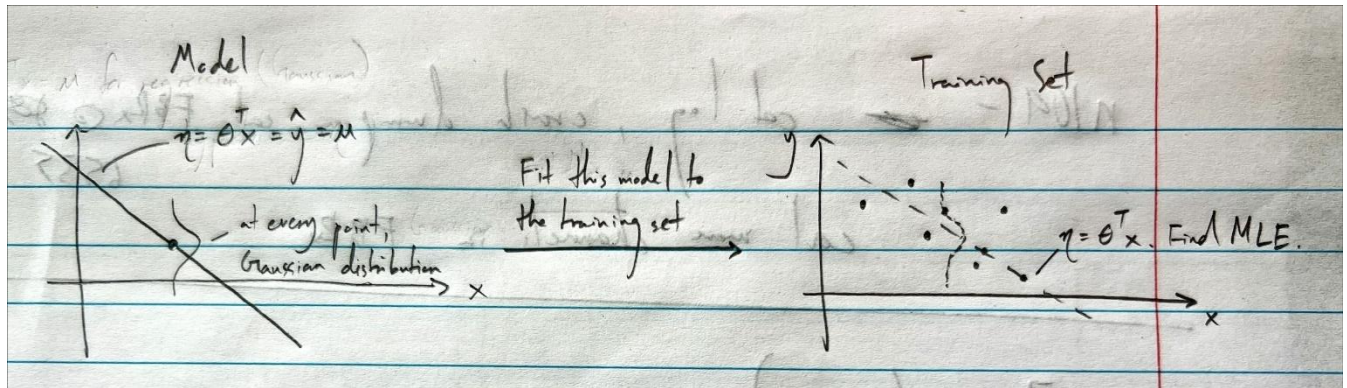 Model
η = θᵀx = ŷ = μ
at every point,
Gaussian distribution
x
Fit this model to
the training set
Training Set
y
η = θᵀx. Find MLE.
x